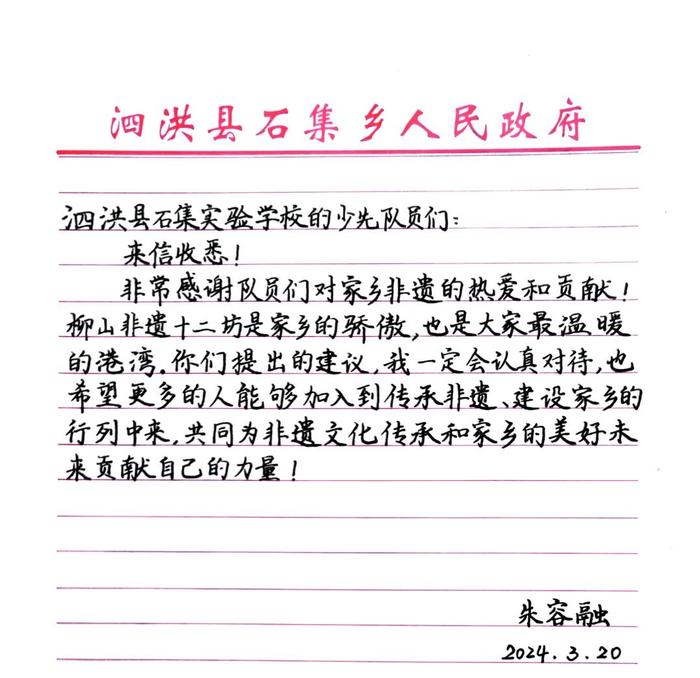 泗洪县石集乡人民政府
泗洪县石集实验学校的少先队员们：
来信收悉！
非常感谢队员们对家乡非遗的热爱和贡献！
柳山非遗十二坊是家乡的骄傲，也是大家最温暖
的港湾。你们提出的建议，我一定会认真对待，也
希望更多的人能够加入到传承非遗、建设家乡的
行列中来，共同为非遗文化传承和家乡的美好未
来贡献自己的力量！
朱容融
2024.3.20